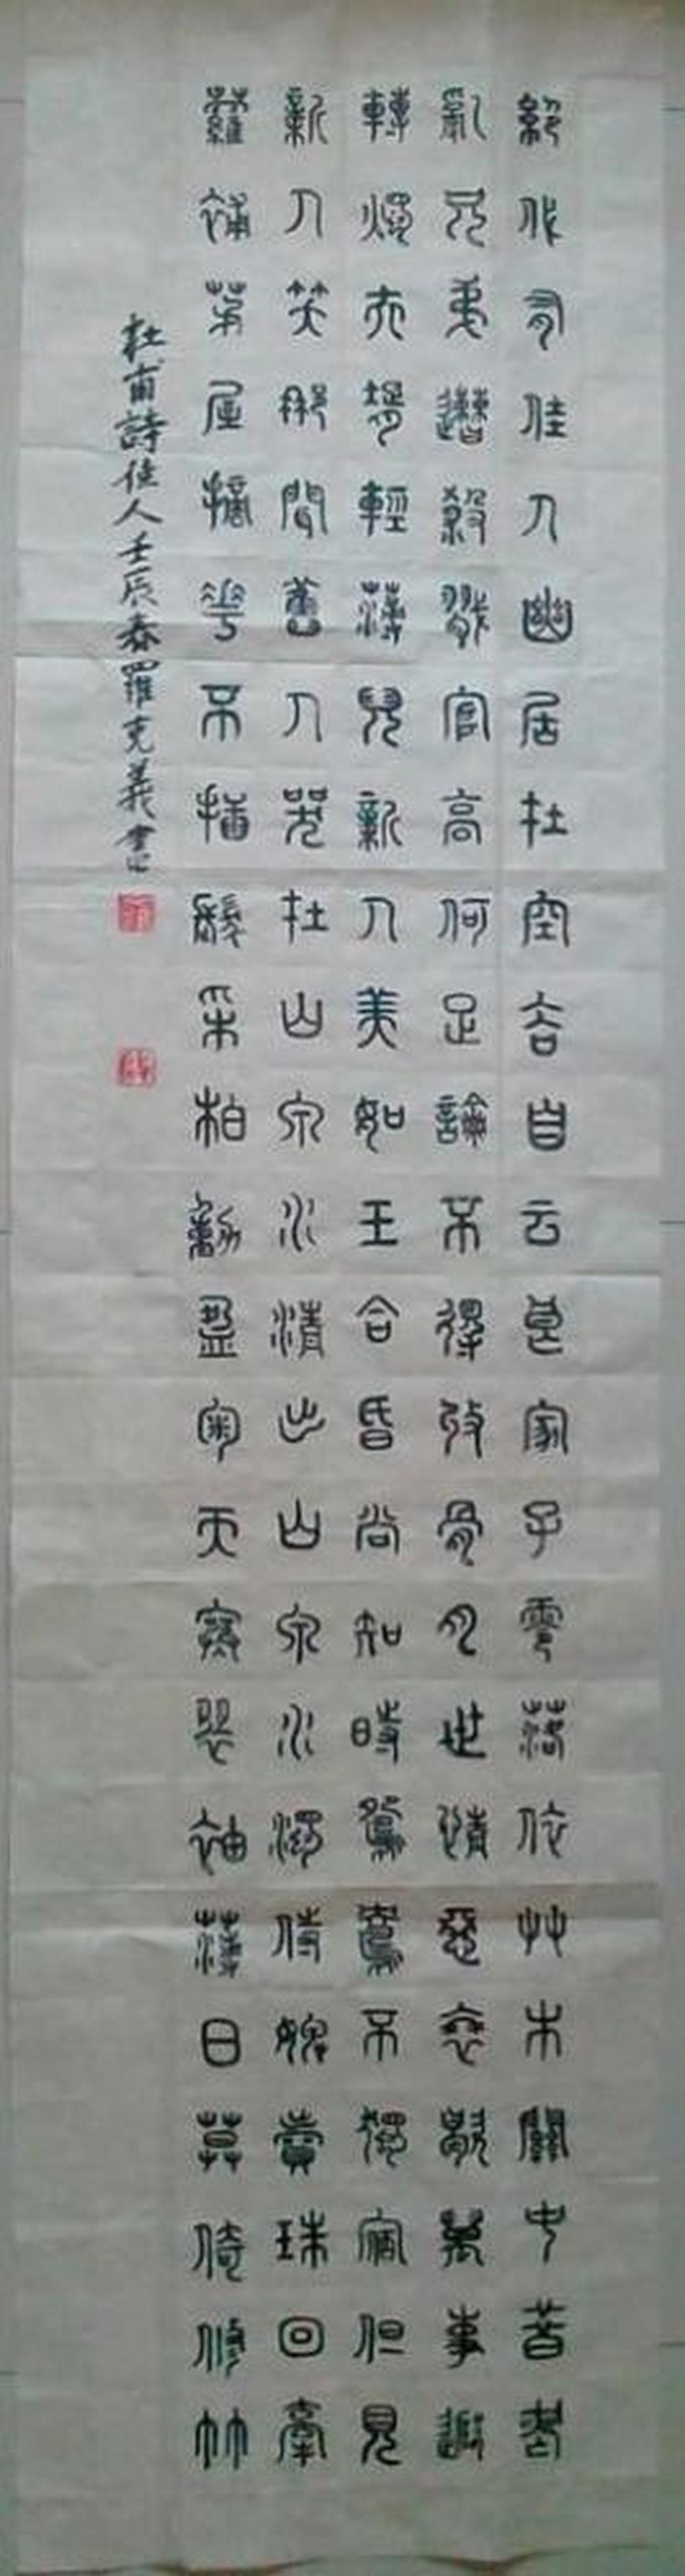 絕代有佳人幽居在空谷自云良家子零落依草木關中昔喪
亂兄弟遭殺戮官高何足論不得收骨肉世情惡衰歇萬事隨
轉燭夫壻輕薄兒新人美如玉合昏尚知時鴛鴦不獨宿但見
新人笑那聞舊人哭在山泉水清出山泉水濁侍婢賣珠回牽
蘿補茅屋摘花不插髮采柏動盈掬天寒翠袖薄日莫倚修竹
杜甫詩佳人壬辰春羅克義書